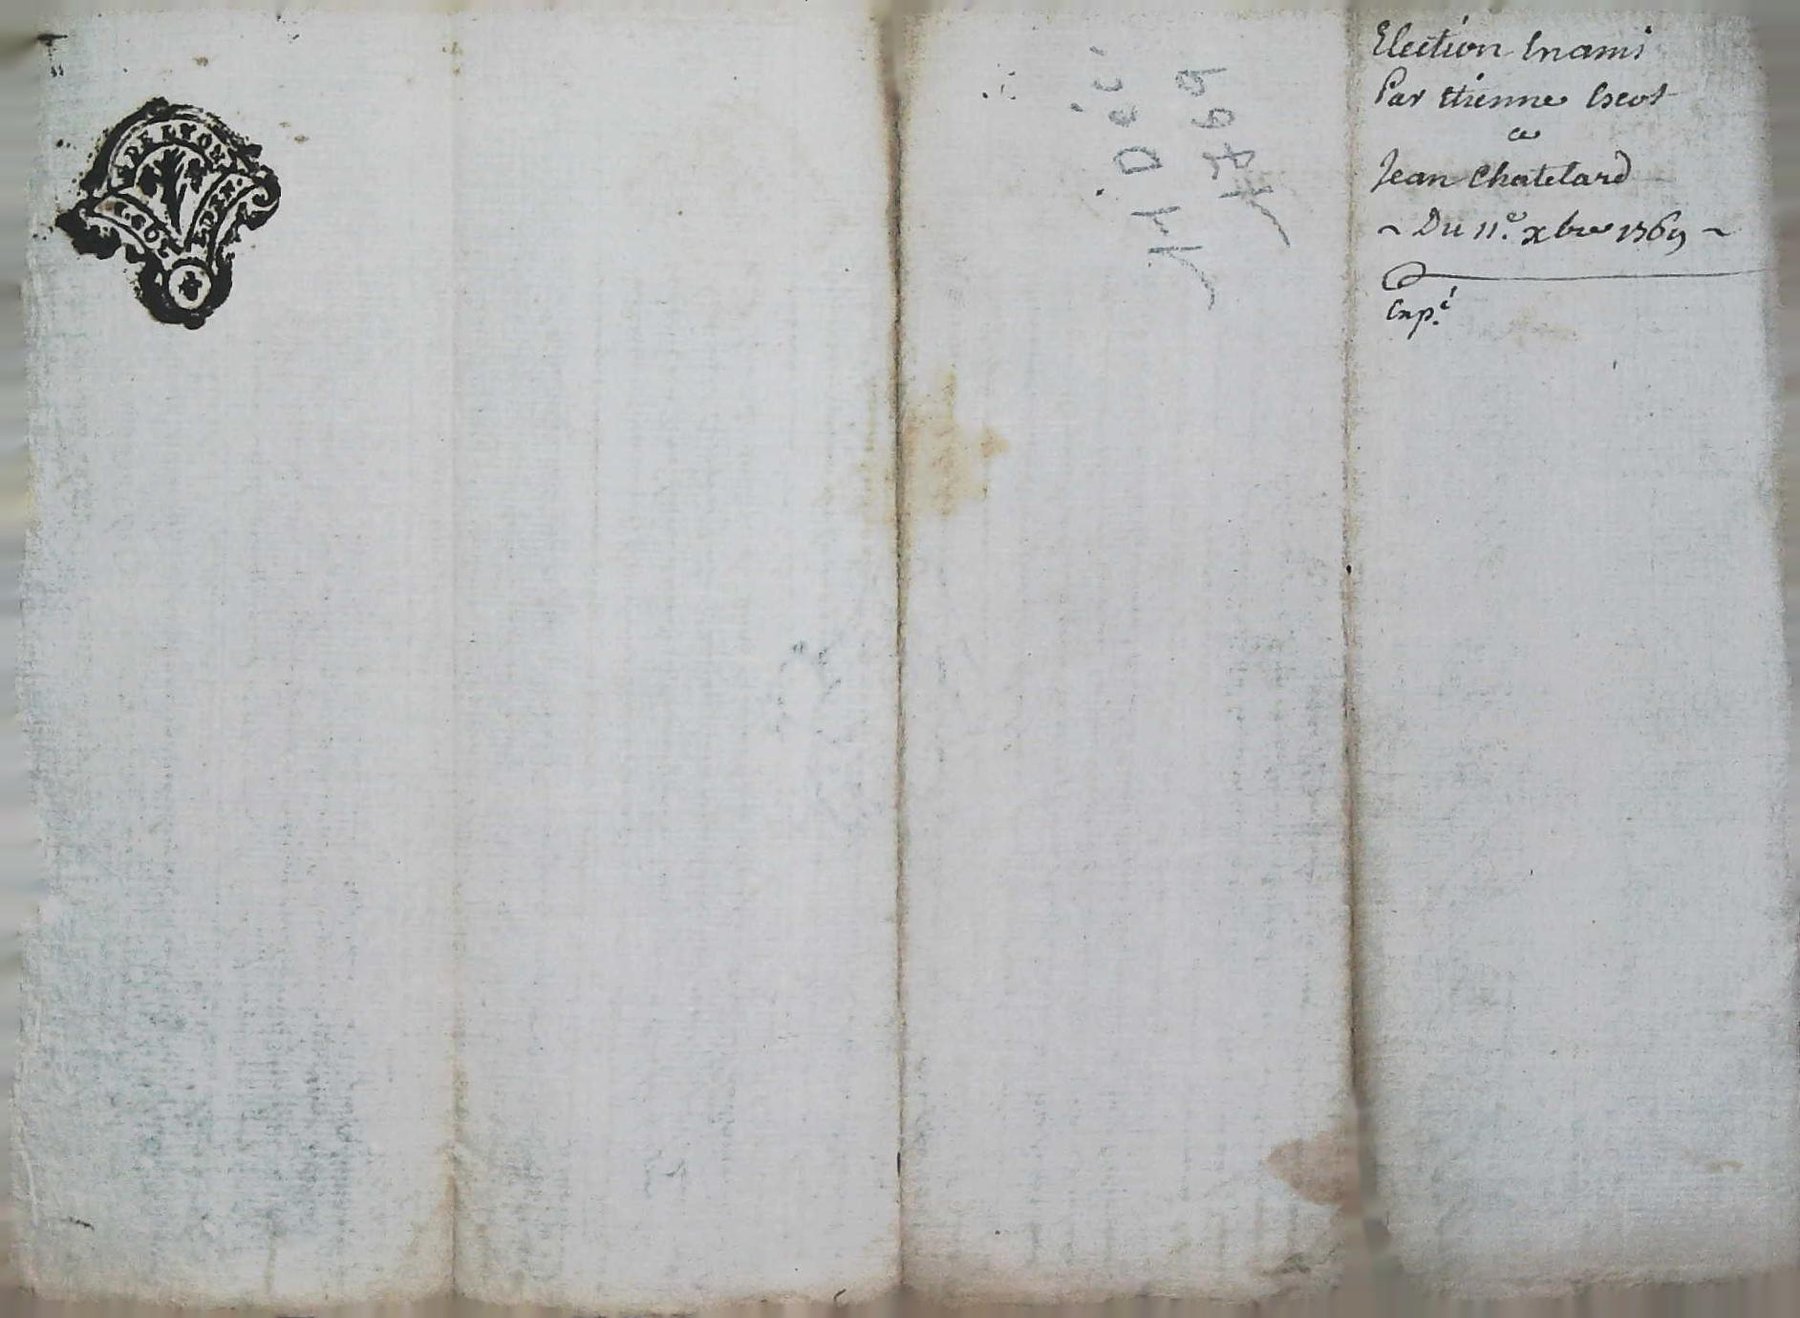 GEN. DE LYON
DEUX
Election En ami
Par Etienne Escot
a
Jean Chatelard
~ Du 11.e xbre 1769 ~
Exp.é
11 Déc.
1769